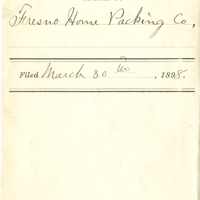 Fresno Home Packing Co,
Filed March 30 th, 1898.